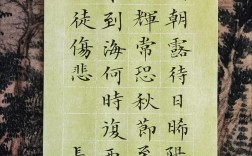 朝露待日晞陽
輝常恐秋節至
到海何時復西
徒傷悲 長